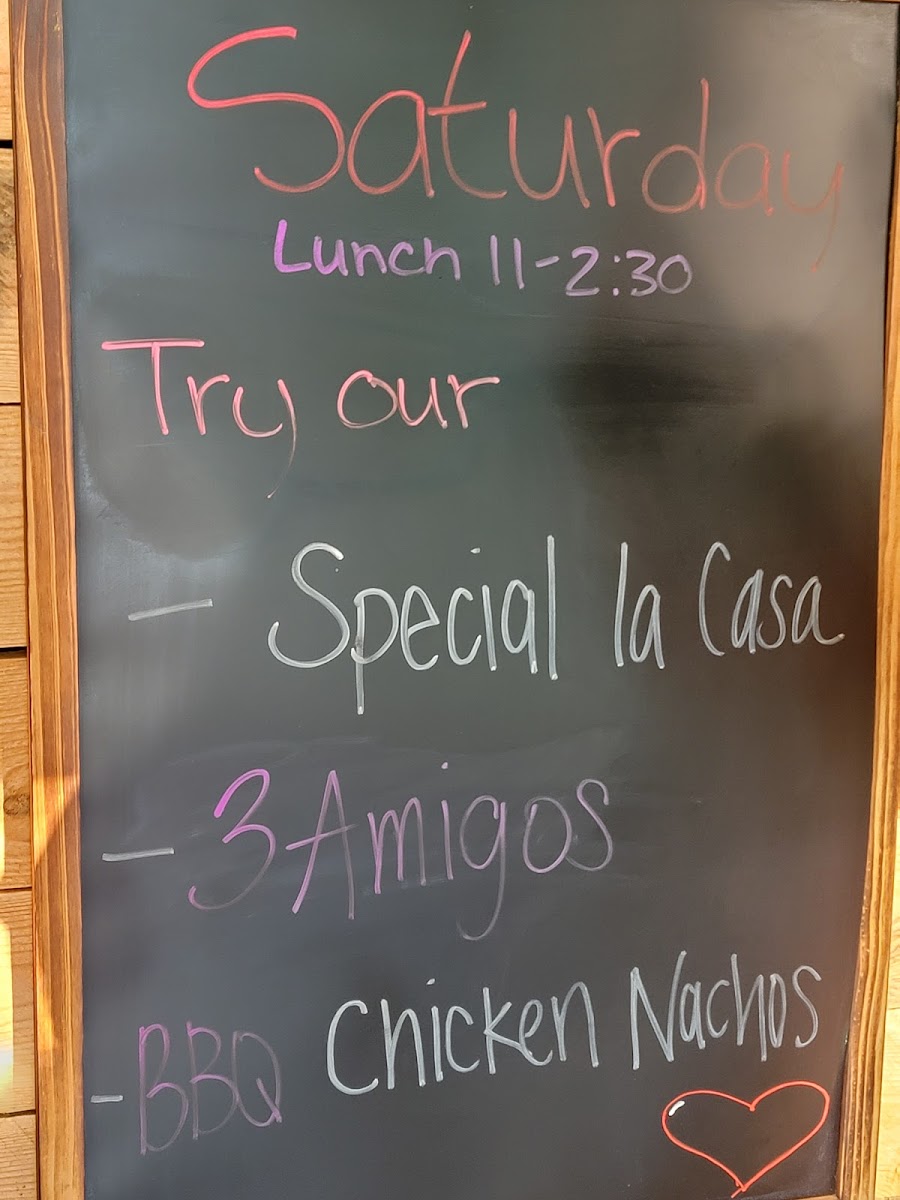 Saturday
Lunch 11-2:30
Try our
- Special la Casa
- 3 Amigos
- BBQ Chicken Nachos